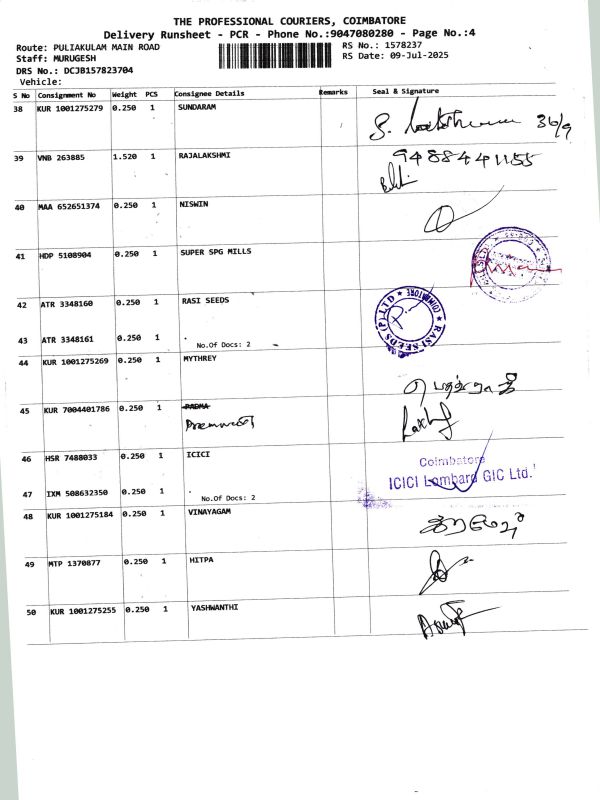 THE PROFESSIONAL COURIERS, COIMBATORE
Delivery Runsheet - PCR - Phone No.:9047080280 - Page No.:4
Route: PULIAKULAM MAIN ROAD
RS No.: 1578237
Staff: MURUGESH
RS Date: 09-Jul-2025
DRS No.: DCJB157823704
Vehicle:
S No Consignment No Weight PCS Consignee Details Remarks Seal & Signature
38 KUR 1001275279 0.250 1 SUNDARAM
36/9
39 VNB 263885 1.520 1 RAJALAKSHMI
9488441155
40 MAA 652651374 0.250 1 NISWIN
41 HDP 5108904 0.250 1 SUPER SPG MILLS
42 ATR 3348160 0.250 1 RASI SEEDS
RASI SEEDS (P) LTD ★ COIMBATORE ★
43 ATR 3348161 0.250 1
No.Of Docs: 2
44 KUR 1001275269 0.250 1 MYTHREY
45 KUR 7004401786 0.250 1 PADMA
46 HSR 7488033 0.250 1 ICICI
Coimbatore
ICICI Lombard GIC Ltd.
47 IXM 508632350 0.250 1
No.Of Docs: 2
48 KUR 1001275184 0.250 1 VINAYAGAM
49 MTP 1370877 0.250 1 HITPA
50 KUR 1001275255 0.250 1 YASHWANTHI